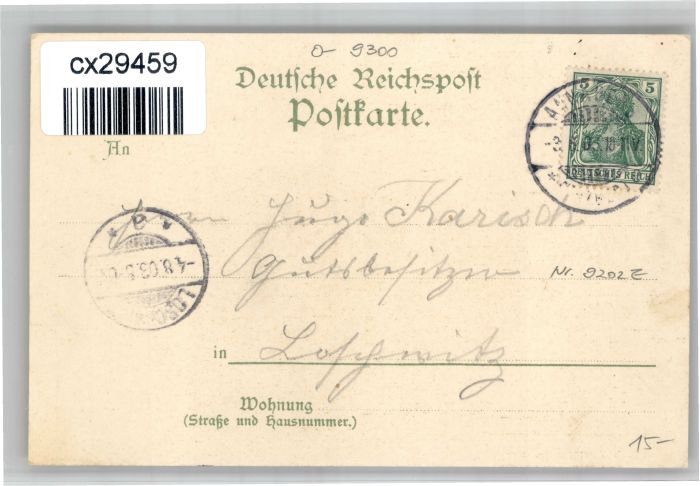 cx29459
O- 9300
Deutsche Reichspost
Postkarte.
5 5
DEUTSCHES REICH
An
Herrn Hugo Karisch
Gutsbesitzer
Nr. 9202 Z
-4.8.03.
in Loschwitz
Wohnung
(Straße und Hausnummer.)
15-